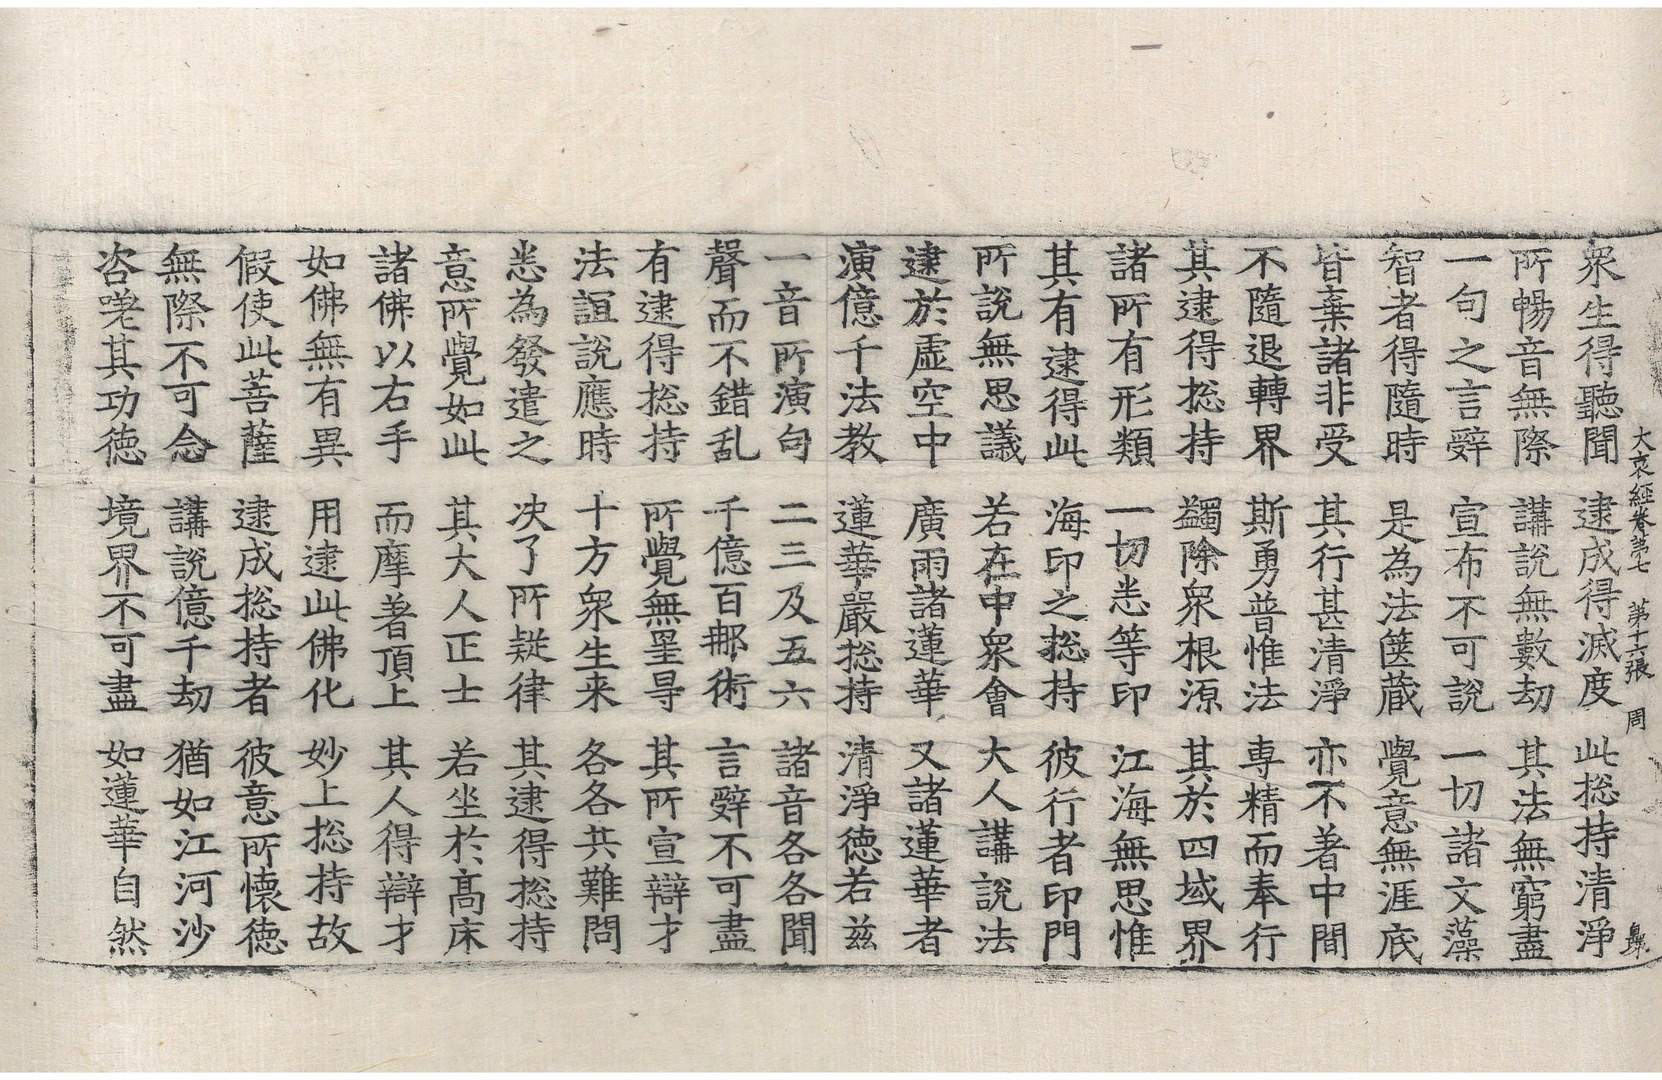 大哀經卷第七 第十六張 周
衆生得聽聞 逮成得滅度 此捴持清淨
所暢音無際 講說無數劫 其法無窮盡
一句之言辭 宣布不可說 一切諸文藻
智者得隨時 是為法篋蔵 覺意無涯底
皆棄諸非受 其行甚清淨 亦不著中間
不隨退轉界 斯勇普惟法 専精而奉行
其逮得捴持 蠲除衆根源 其於四域界
諸所有形類 一切悉等印 江海無思惟
其有逮得此 海印之捴持 彼行者印門
所說無思議 若在中衆會 大人講說法
逮於虛空中 廣雨諸蓮華 又諸蓮華者
演億千法教 蓮華嚴捴持 清淨德若兹
一音所演句 二三及五六 諸音各各聞
聲而不錯乱 千億百𨚗術 言辤不可盡
有逮得捴持 所覺無罣㝵 其所宣辯才
法誼說應時 十方衆生来 各各共難問
悉為發遣之 决了所疑律 其逮得捴持
意所覺如此 其大人正士 若坐於高床
諸佛以右手 而摩著頂上 其人得辯才
如佛無有異 用逮此佛化 妙上捴持故
假使此菩薩 逮成捴持者 彼意所懷德
無際不可念 講說億千劫 猶如江河沙
咨嗟其功德 境界不可盡 如蓮華自然